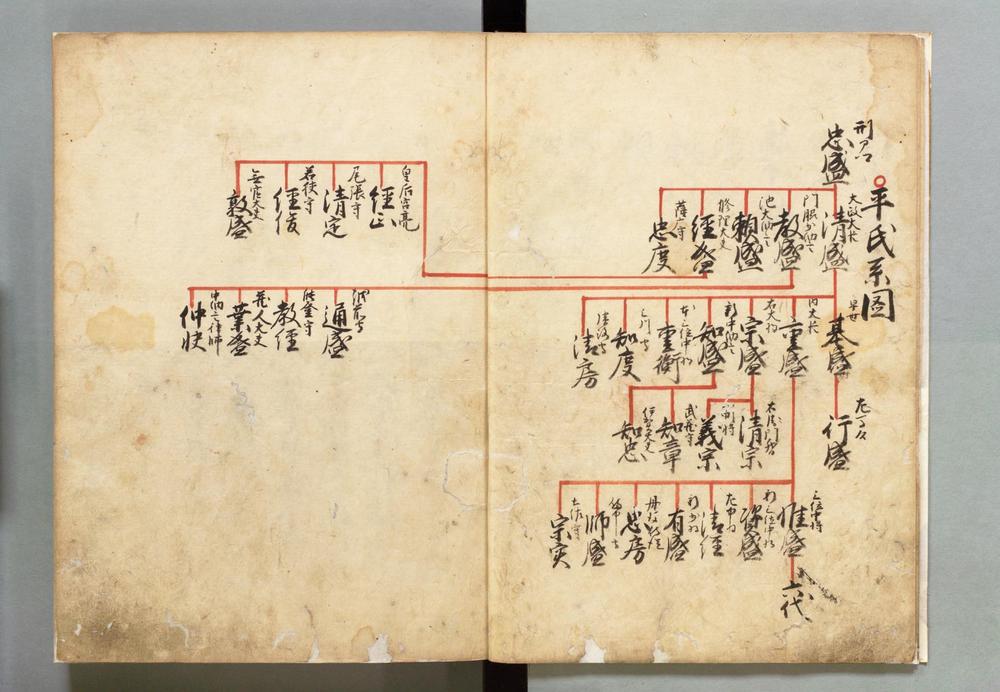 平氏系圖
忠盛
清盛
門脇中納言
教盛
池大納言
頼盛
修理大夫
經盛
薩广守
忠度
早世
基盛
内大臣
重盛
右大将
宗盛
新中納言
知盛
本三位中将
重衡
三川守
知度
清房
行盛
右衛門督
清宗
副将
義宗
武蔵守
知章
伊賀大夫
知忠
三位中将
惟盛
新三位中将
資盛
左中将
清経
新少将
有盛
丹後侍従
忠房
備中守
師盛
土佐守
宗実
六代
皇后宮亮
經正
尾張守
清定
若狭守
經俊
無官大夫
敦盛
越前守
通盛
能登守
教經
蔵人大夫
業盛
中納言律師
仲快